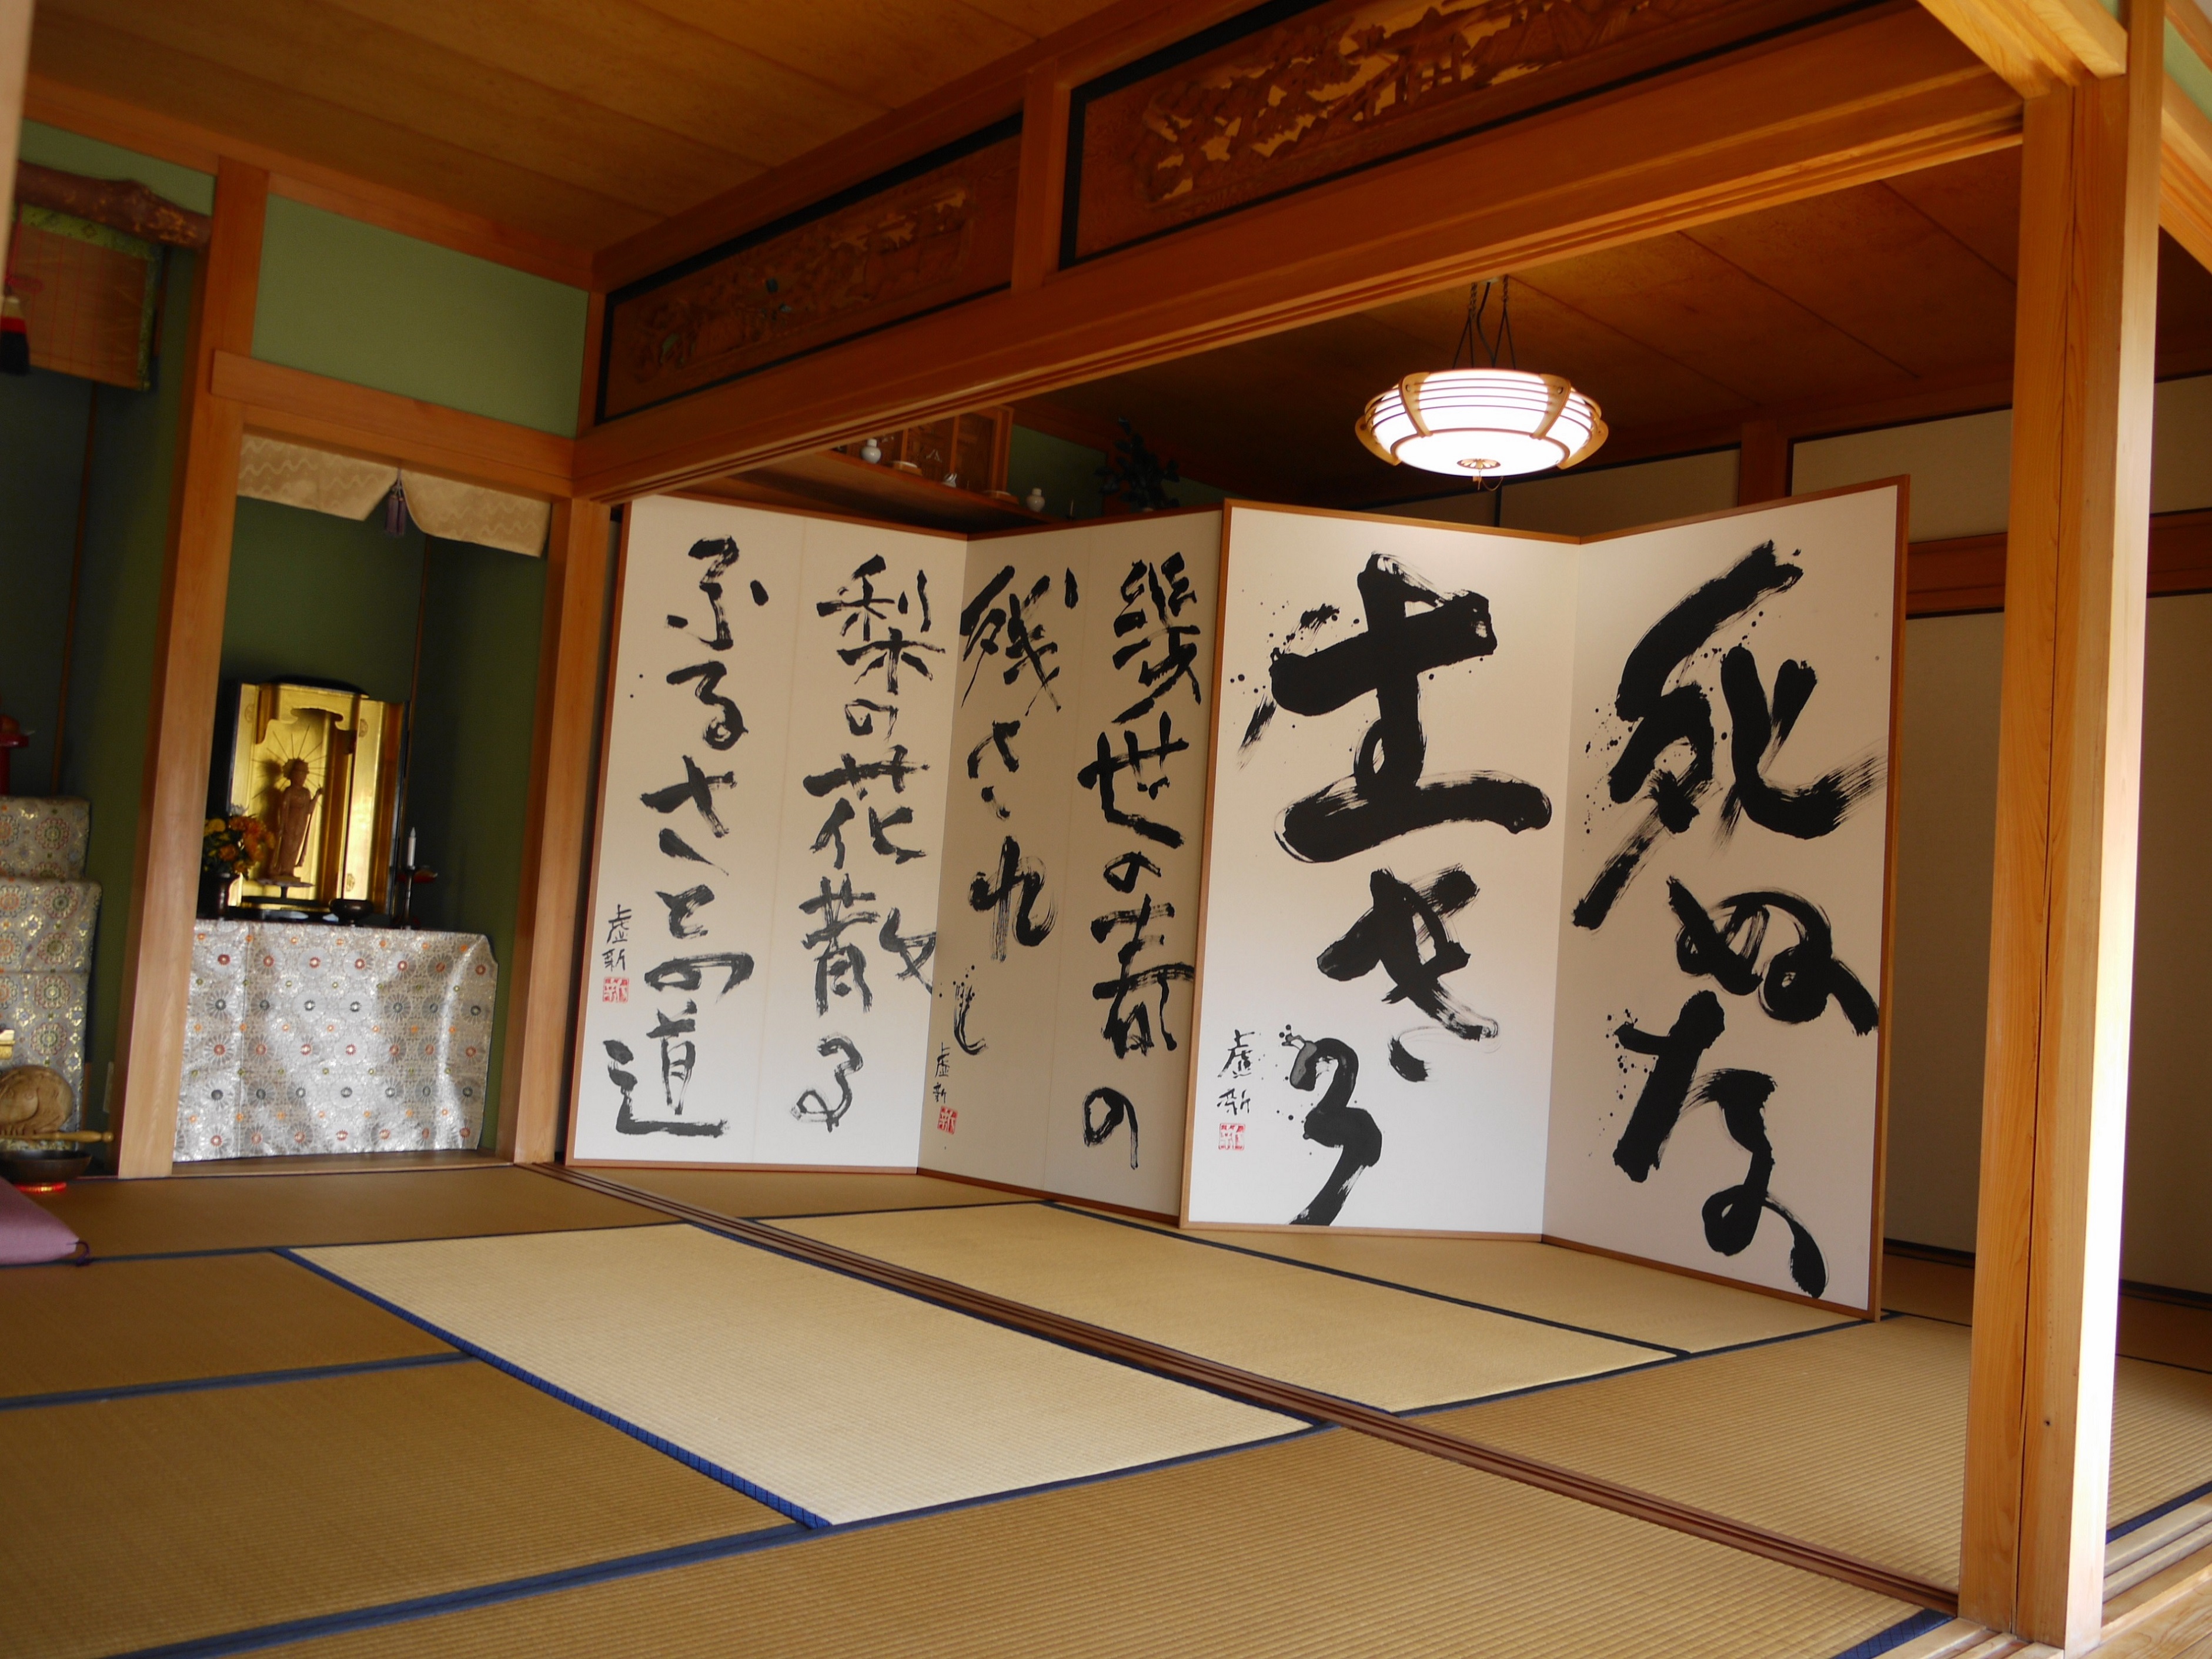 死ぬな
生きろ
虚新
幾世の春の
残されし
虚新
梨の花散る
ふるさとの道
虚新